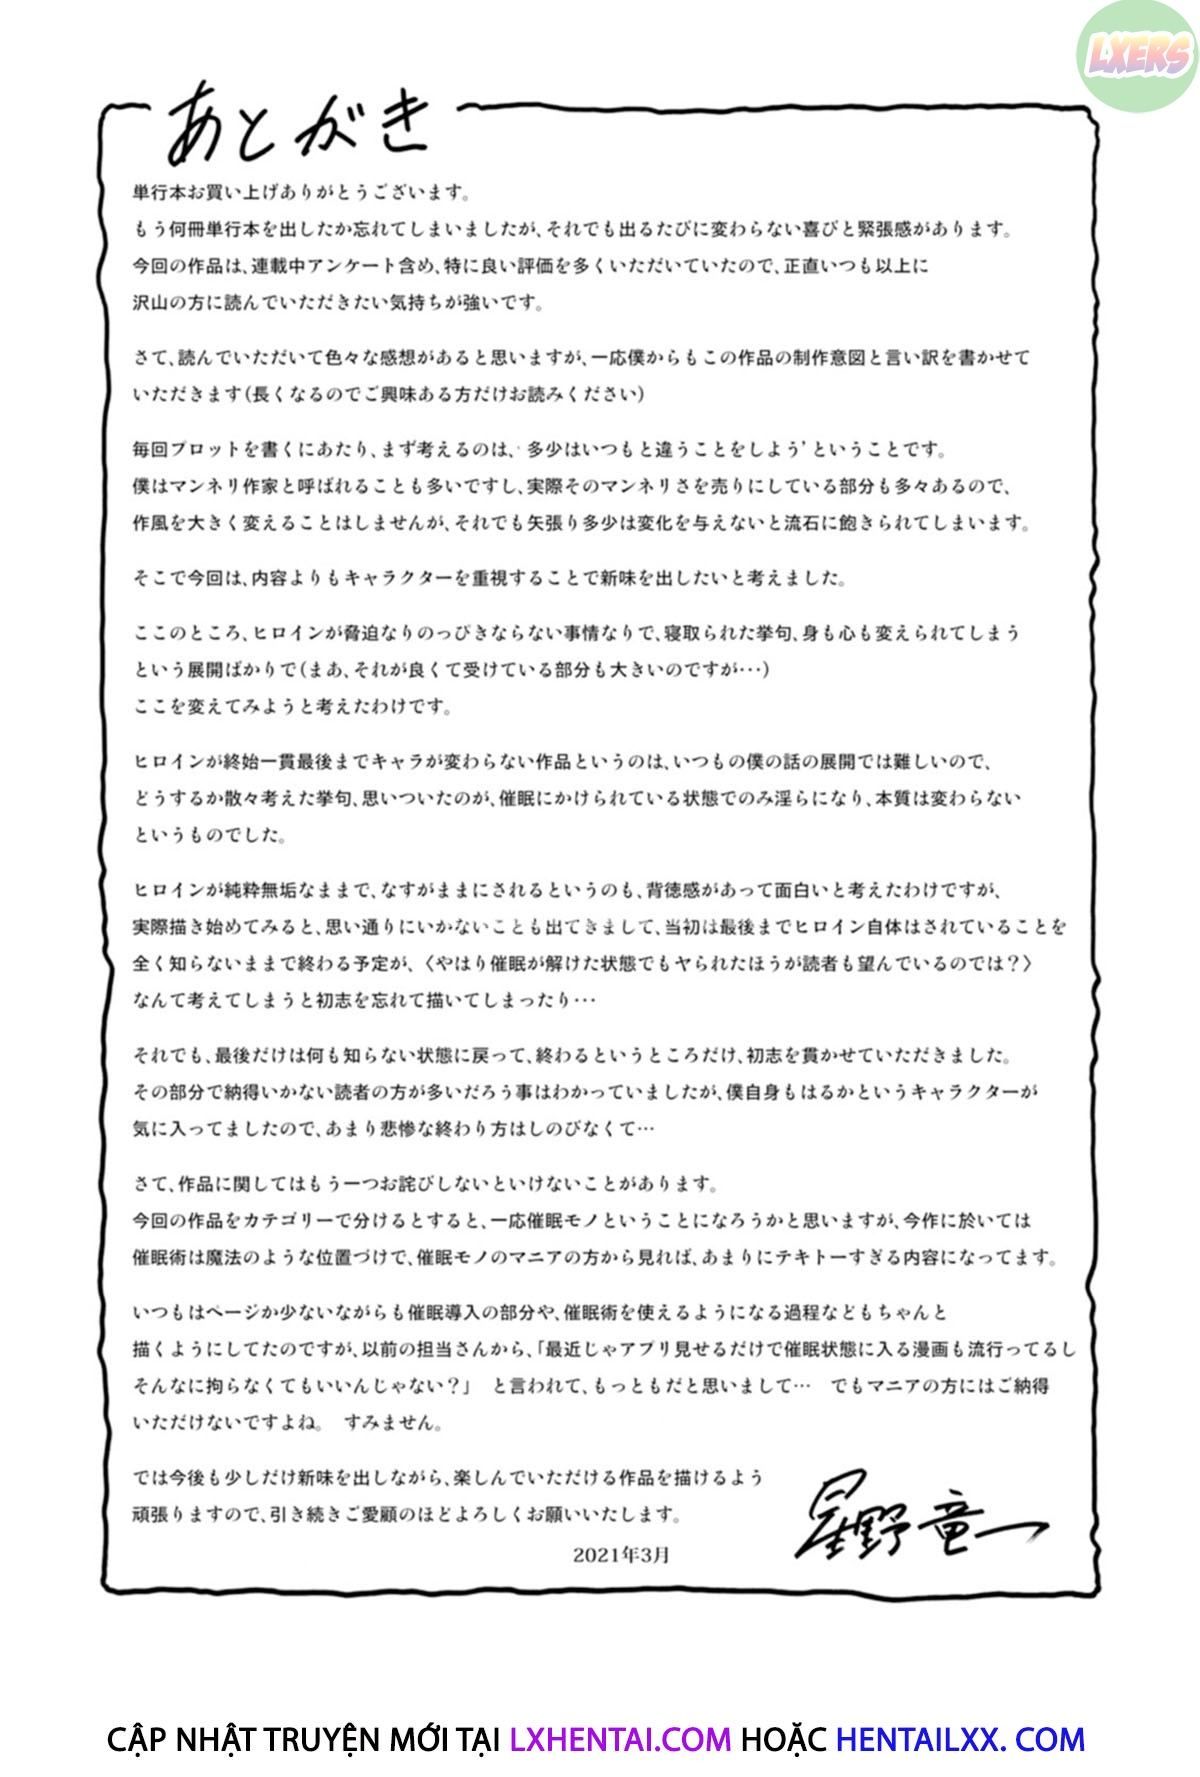 LXERS
あとがき
単行本お買い上げありがとうございます。
もう何冊単行本を出したか忘れてしまいましたが、それでも出るたびに変わらない喜びと緊張感があります。
今回の作品は、連載中アンケート含め、特に良い評価を多くいただいていたので、正直いつも以上に
沢山の方に読んでいただきたい気持ちが強いです。
さて、読んでいただいて色々な感想があると思いますが、一応僕からもこの作品の制作意図と言い訳を書かせて
いただきます(長くなるのでご興味ある方だけお読みください)
毎回プロットを書くにあたり、まず考えるのは、‘多少はいつもと違うことをしよう’ということです。
僕はマンネリ作家と呼ばれることも多いですし、実際そのマンネリさを売りにしている部分も多々あるので、
作風を大きく変えることはしませんが、それでも矢張り多少は変化を与えないと流石に飽きられてしまいます。
そこで今回は、内容よりもキャラクターを重視することで新味を出したいと考えました。
ここのところ、ヒロインが脅迫なりのっぴきならない事情なりで、寝取られた挙句、身も心も変えられてしまう
という展開ばかりで(まあ、それが良くて受けている部分も大きいのですが…)
ここを変えてみようと考えたわけです。
ヒロインが終始一貫最後までキャラが変わらない作品というのは、いつもの僕の話の展開では難しいので、
どうするか散々考えた挙句、思いついたのが、催眠にかけられている状態でのみ淫らになり、本質は変わらない
というものでした。
ヒロインが純粋無垢なままで、なすがままにされるというのも、背徳感があって面白いと考えたわけですが、
実際描き始めてみると、思い通りにいかないことも出てきまして、当初は最後までヒロイン自体はされていることを
全く知らないままで終わる予定が、〈やはり催眠が解けた状態でもヤられたほうが読者も望んでいるのでは？〉
なんて考えてしまうと初志を忘れて描いてしまったり…
それでも、最後だけは何も知らない状態に戻って、終わるというところだけ、初志を貫かせていただきました。
その部分で納得いかない読者の方が多いだろう事はわかっていましたが、僕自身もはるかというキャラクターが
気に入ってましたので、あまり悲惨な終わり方はしのびなくて…
さて、作品に関してはもう一つお詫びしないといけないことがあります。
今回の作品をカテゴリーで分けるとすると、一応催眠モノということになろうかと思いますが、今作に於いては
催眠術は魔法のような位置づけで、催眠モノのマニアの方から見れば、あまりにテキトーすぎる内容になってます。
いつもはページか少ないながらも催眠導入の部分や、催眠術を使えるようになる過程などもちゃんと
描くようにしてたのですが、以前の担当さんから、「最近じゃアプリ見せるだけで催眠状態に入る漫画も流行ってるし
そんなに拘らなくてもいいんじゃない？」 と言われて、もっともだと思いまして… でもマニアの方にはご納得
いただけないですよね。 すみません。
では今後も少しだけ新味を出しながら、楽しんでいただける作品を描けるよう
頑張りますので、引き続きご愛顧のほどよろしくお願いいたします。
2021年3月
星野竜一
CẬP NHẬT TRUYỆN MỚI TẠI LXHENTAI.COM HOẶC HENTAILXX. COM